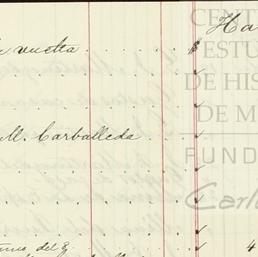 Ha
vuelta
M. Carballeda
del
4
CENT
ESTU
DE HIS
DE M
FUND
Carl